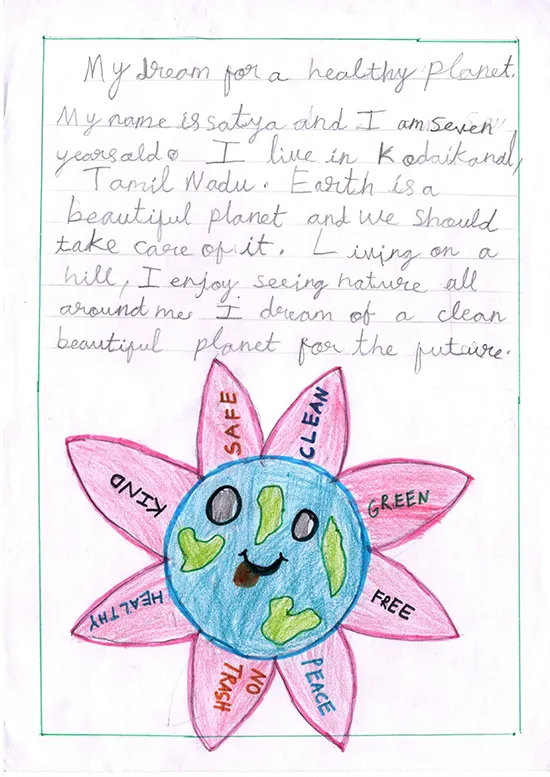 My dream for a healthy planet.
My name is satya and I am seven
years old. I live in Kodaikanal,
Tamil Nadu. Earth is a
beautiful planet and we should
take care of it. Living on a
hill, I enjoy seeing nature all
around me I dream of a clean
beautiful planet for the future.
SAFE
CLEAN
GREEN
FREE
PEACE
NO
TRASH
HEALTHY
KIND